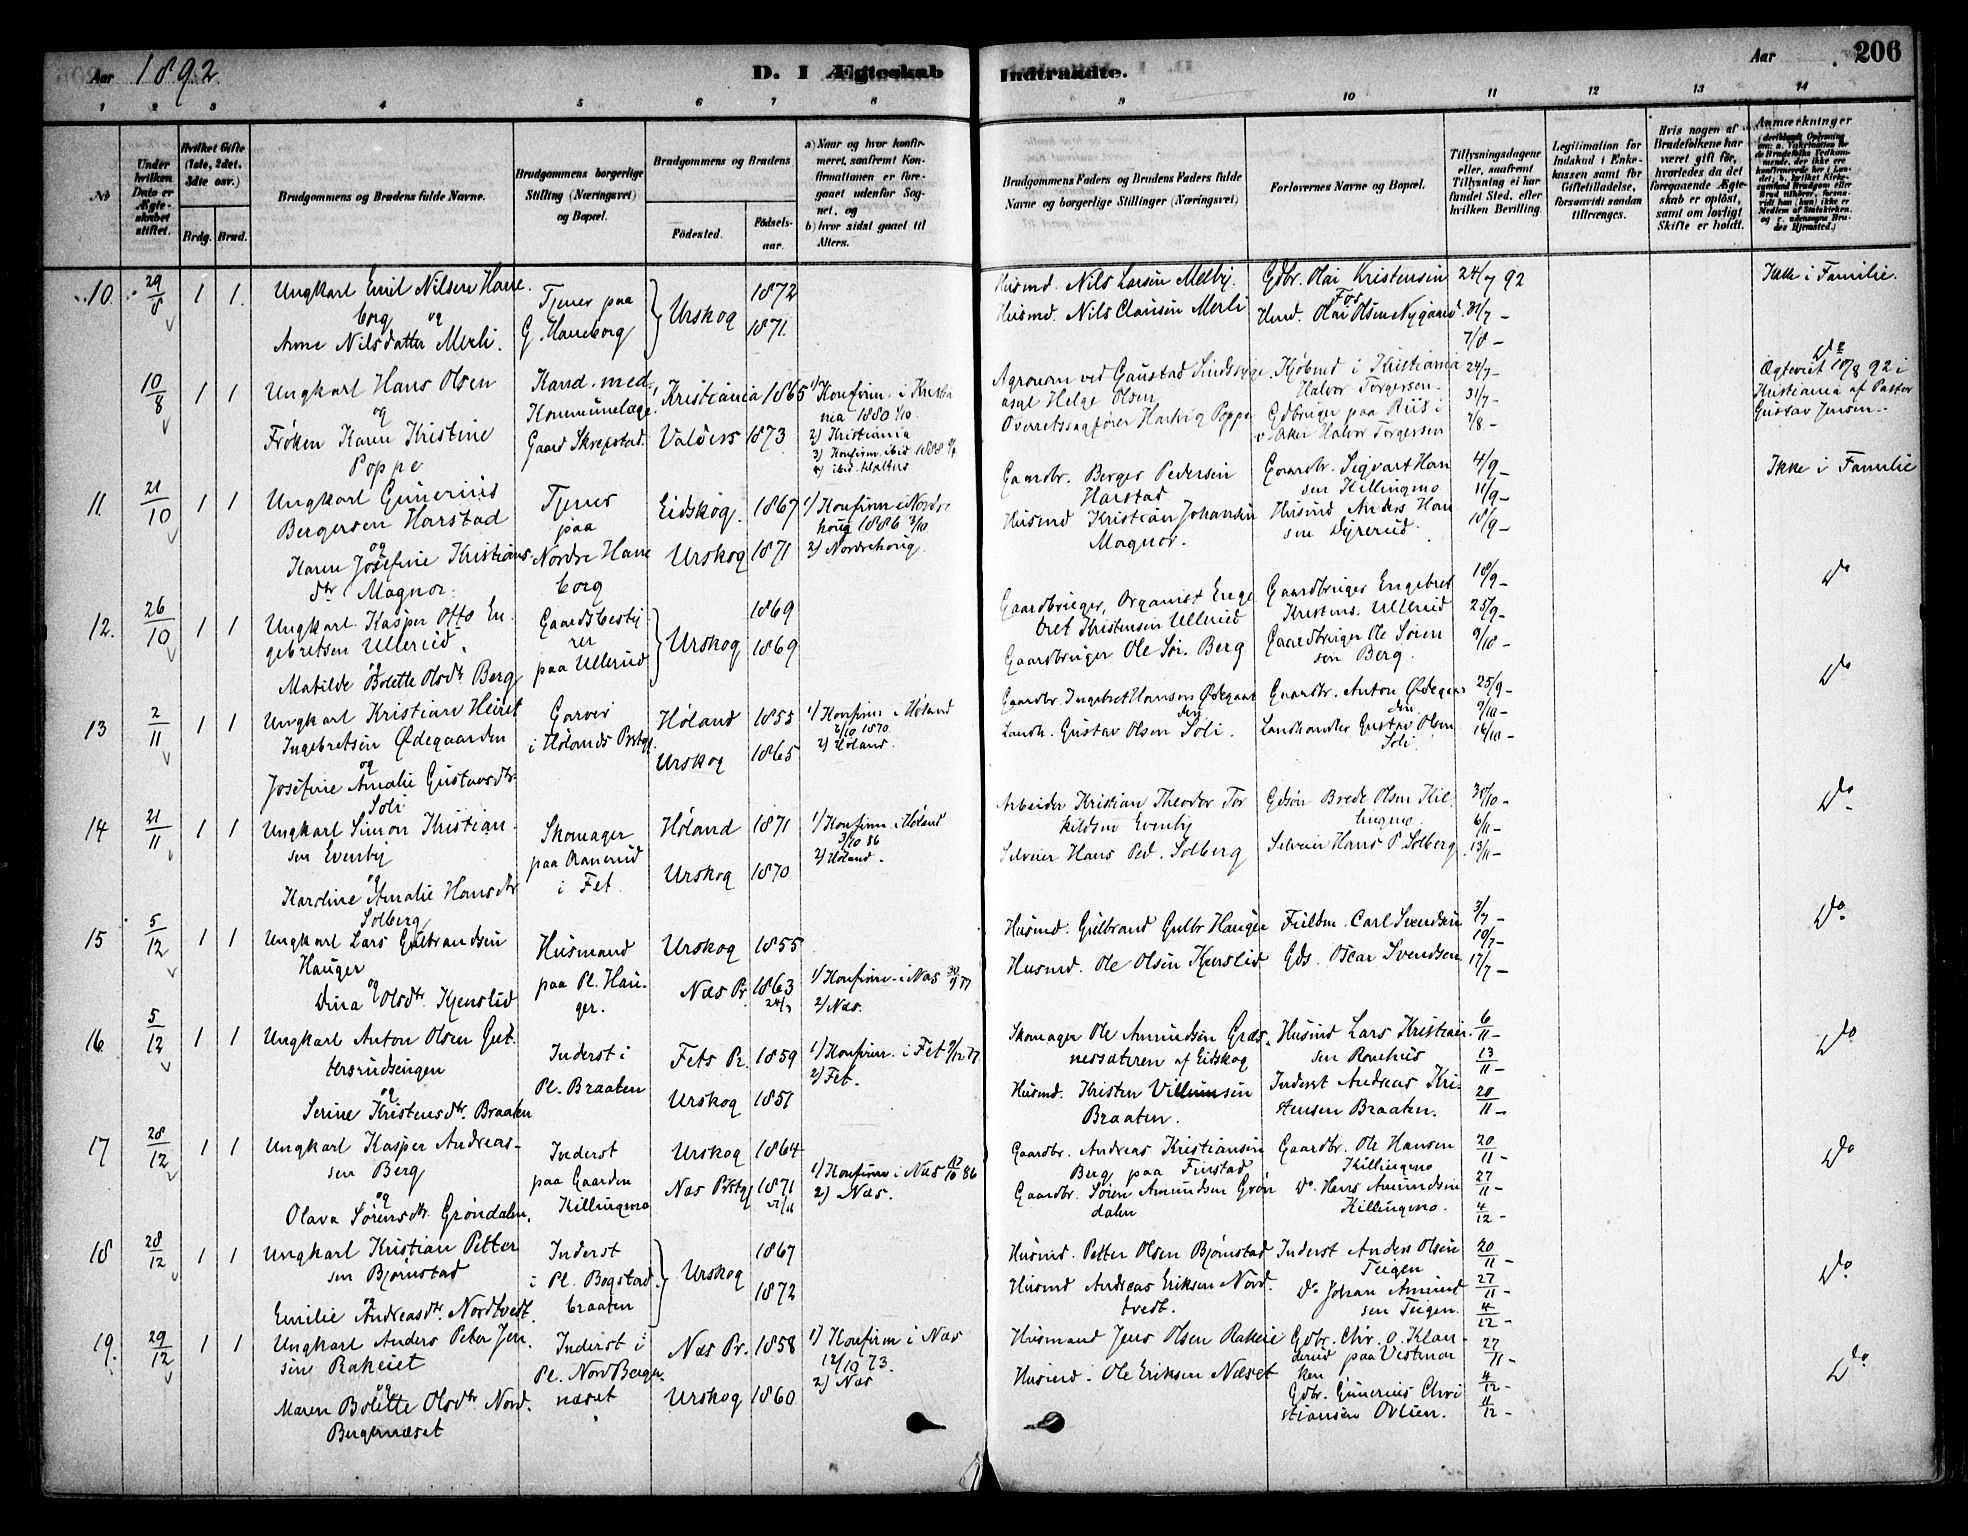 Aar 1892.
D. I Ægteskab Indtraadte.
Aar . 206
1 2 3 4 5 6 7 8 9 10 11 12 13 14
No
Under hvilken Dato er Ægteskabet stiftet.
Hvilket Gifte (1ste, 2det, 3die osv.)
Brdg. Brud.
Brudgommens og Brudens fulde Navne.
Brudgommens borgerlige Stilling (Næringsvei) og Bopæl.
Brudgommens og Brudens
Fødested.
Fødselsaar.
a) Naar og hvor konfirmeret, saafremt Konfirmationen er foregaaet udenfor Sognet, og
b) hvor sidst gaaet til Alters.
Brudgommens Faders og Brudens Faders fulde Navne og borgerlige Stillinger (Næringsvei)
Forlovernes Navne og Bopæl.
Tillysningsdagene eller, saafremt Tillysning ei har fundet Sted, efter hvilken Bevilling.
Legitimation for Indskud i Enkekassen samt for Giftetilladelse, forsaavidt saadan tiltrænges.
Hvis nogen af Brudefolkene har været gift før, hvorledes da det foregaaende Ægteskab er opløst, samt om lovligt Skifte er holdt.
Anmærkninger
10 29/8 1 1 Ungkarl Emil Nilsen Haneborg og Anne Nilsdatter Merli.
Tjener paa G. Haneborg
Urskog 1872 1871.
Husmd. Nils Larsen Melby.
Husmd. Nils Clausen Merli
Gdbr. Olai Kristensen Fos
Husd. Olai Olsen Nygaard.
24/7 92 31/7 - 7/8 -
Ikke i Familie.
10/8 1 1 Ungkarl Hans Olsen og Frøken Karen Kristine Poppe
Kand. med., Kommunelæge, Gaard Skrepstad.
Kristiania 1865 Valders 1873
1) Konfirm. i Kristiania 1880 1/10.
2) Kristiania
3) Konfirm. ibid 1888
4) ibid.
Agronom ved Gaustad Sindssygeasyl Helge Olsen
Overretssagfører Hartvig Poppe
Kjøbmd i Kristiania Halvor Torgersen.
Gdbruger paa Riis i v. Aker Halvor Torgersen
24/7 - 31/7 - 7/8 -
Do
Ægteviet 10/8 92 i Kristiania af Pastor Gustav Jensen.
11. 21/10 1 1 Ungkarl Gunerius Bergersen Harstad og Karen Josefine Kristiansdtr Magnor.
Tjener paa Nordre Haneborg
Eidskog. 1867 Urskog 1871
1) Konfirm i Nordrehoug 1886 3/10
2) Nordrehoug.
Gaardbr. Berger Pedersen Harstad
Husmd Kristian Johansen Magnor.
Gaardbr. Sigvart Hansen Killingmo
Husmd Anders Hansen Dyrerud.
4/9 - 11/9 - 18/9 -
Ikke i Familie
12. 26/10 1 1 Ungkarl Kasper Otto Engebretsen Ullerud og Matilde Bolette Olsdtr Berg
Gaardsbestyrer paa Ullerud
Urskog 1869 1869
Gaardbruger, Organist Engebret Kristensen Ullerud
Gaardbruger Ole Sør. Berg
Gaardbruger Engebret Kristens. Ullerud
Gaardbruger Ole Sørensen Berg.
18/9 - 25/9 - 9/10 -
Do
13 2/11 1 1 Ungkarl Kristian Heiret Ingebretsen Ødegaarden og Josefine Amalie Gustavsdtr. Soli
Garver i Hølands Prstgj.
Høland 1855 Urskog 1865
1) Konfirm. i Høland 2/10 1870
2) Høland.
Gaardbr. Ingebret Hansen Ødegaarden
Landh. Gustav Olsen Soli.
Gaardbr. Anton Ødegaarden
Landhandler Gustav Olsen Soli.
25/9 - 9/10 - 16/10 -
Do
14 21/11 1 1 Ungkarl Simon Kristiansen Evenby og Karoline Amalie Hansdtr Solberg
Skomager paa Ramerud i Fet.
Høland 1871 Urskog 1870
1) Konfirm. i Høland 3/10 86
2) Høland.
Arbeider Kristian Theodor Torkildsen Evenby
Selveier Hans Ped. Solberg
Gdsøn Brede Olsen Killingmo.
Selveier Hans P. Solberg.
30/10 - 6/11 - 13/11 -
Do
15 5/12 1 1 Ungkarl Lars Gulbrandsen Hauger og Dina Olsdtr. Kjenslid
Husmand paa Pl. Hauger.
Urskog 1855 Næs Pr 1863 24/3
1) Konfirm. i Næs 30/9 77
2) Næs.
Husmd. Gulbrand Gulbr Hauger
Husmd. Ole Olsen Kjenslid
Fuldm. Carl Svendsen
Gds. Oscar Svendsen
3/7 - 10/7 - 17/7 -
Do
16 5/12 1 1 Ungkarl Anton Olsen Guttersrudsengen og Serine Kristensdtr. Braaten
Inderst i Pl. Braaten
Fets Pr. 1859 Urskog 1851
1) Konfirm. i Fet 9/12 77
2) Fet.
Skomager Ole Amundsen Græsnessæteren af Eidskog
Husmd. Kristen Villumsen Braaten.
Husmd Lars Kristiansen Ronehus
Inderst Andreas Kristensen Braaten.
6/11 - 13/11 - 20/11 -
Do
17 28/12 1 1 Ungkarl Kasper Andreassen Berg og Olava Sørensdtr. Grøndalen.
Inderst paa Gaarden Killingmo
Urskog 1864 Næs Prstgj 1871
1) Konfirm i Næs 86
2) Næs.
Gaardbr. Andreas Kristiansen Berg paa Finstad
Gaardbr. Søren Amundsen Grøndalen
Gaardbr. Ole Hansen Killingmo
Do. Hans Amundsen Killingmo.
20/11 - 27/11 - 4/12 -
Do
18 28/12 1 1 Ungkarl Kristian Pettersen Bjørnstad og Emilie Andreasdtr. Nordtvedt.
Inderst i Pl. Bogstadbraaten
Urskog 1867 1872
Husmd. Petter Olsen Bjørnstad
Husmd Andreas Eriksen Nordtvedt.
Inderst Anders Olsen Teigen
Do Johan Amundsen Teigen.
20/11 - 27/11 - 4/12 -
Do
19. 29/12 1 1 Ungkarl Anders Peter Jensen Rakeiet og Maren Bolette Olsdtr Nord. Bergernæset
Inderst i Pl. Nord Bergernæset
Næs Pr. 1858 Urskog 1860
1) Konfirm i Næs 12/10 73.
2) Næs
Husmand Jens Olsen Rakeie
Husmd. Ole Eriksen Næset
Gdbr. Chr. O. Klanderud paa Vestmarken
Gdbr. Gunerius Christiansen Ovlien.
27/11 - 4/12 - 11/12 -
Do